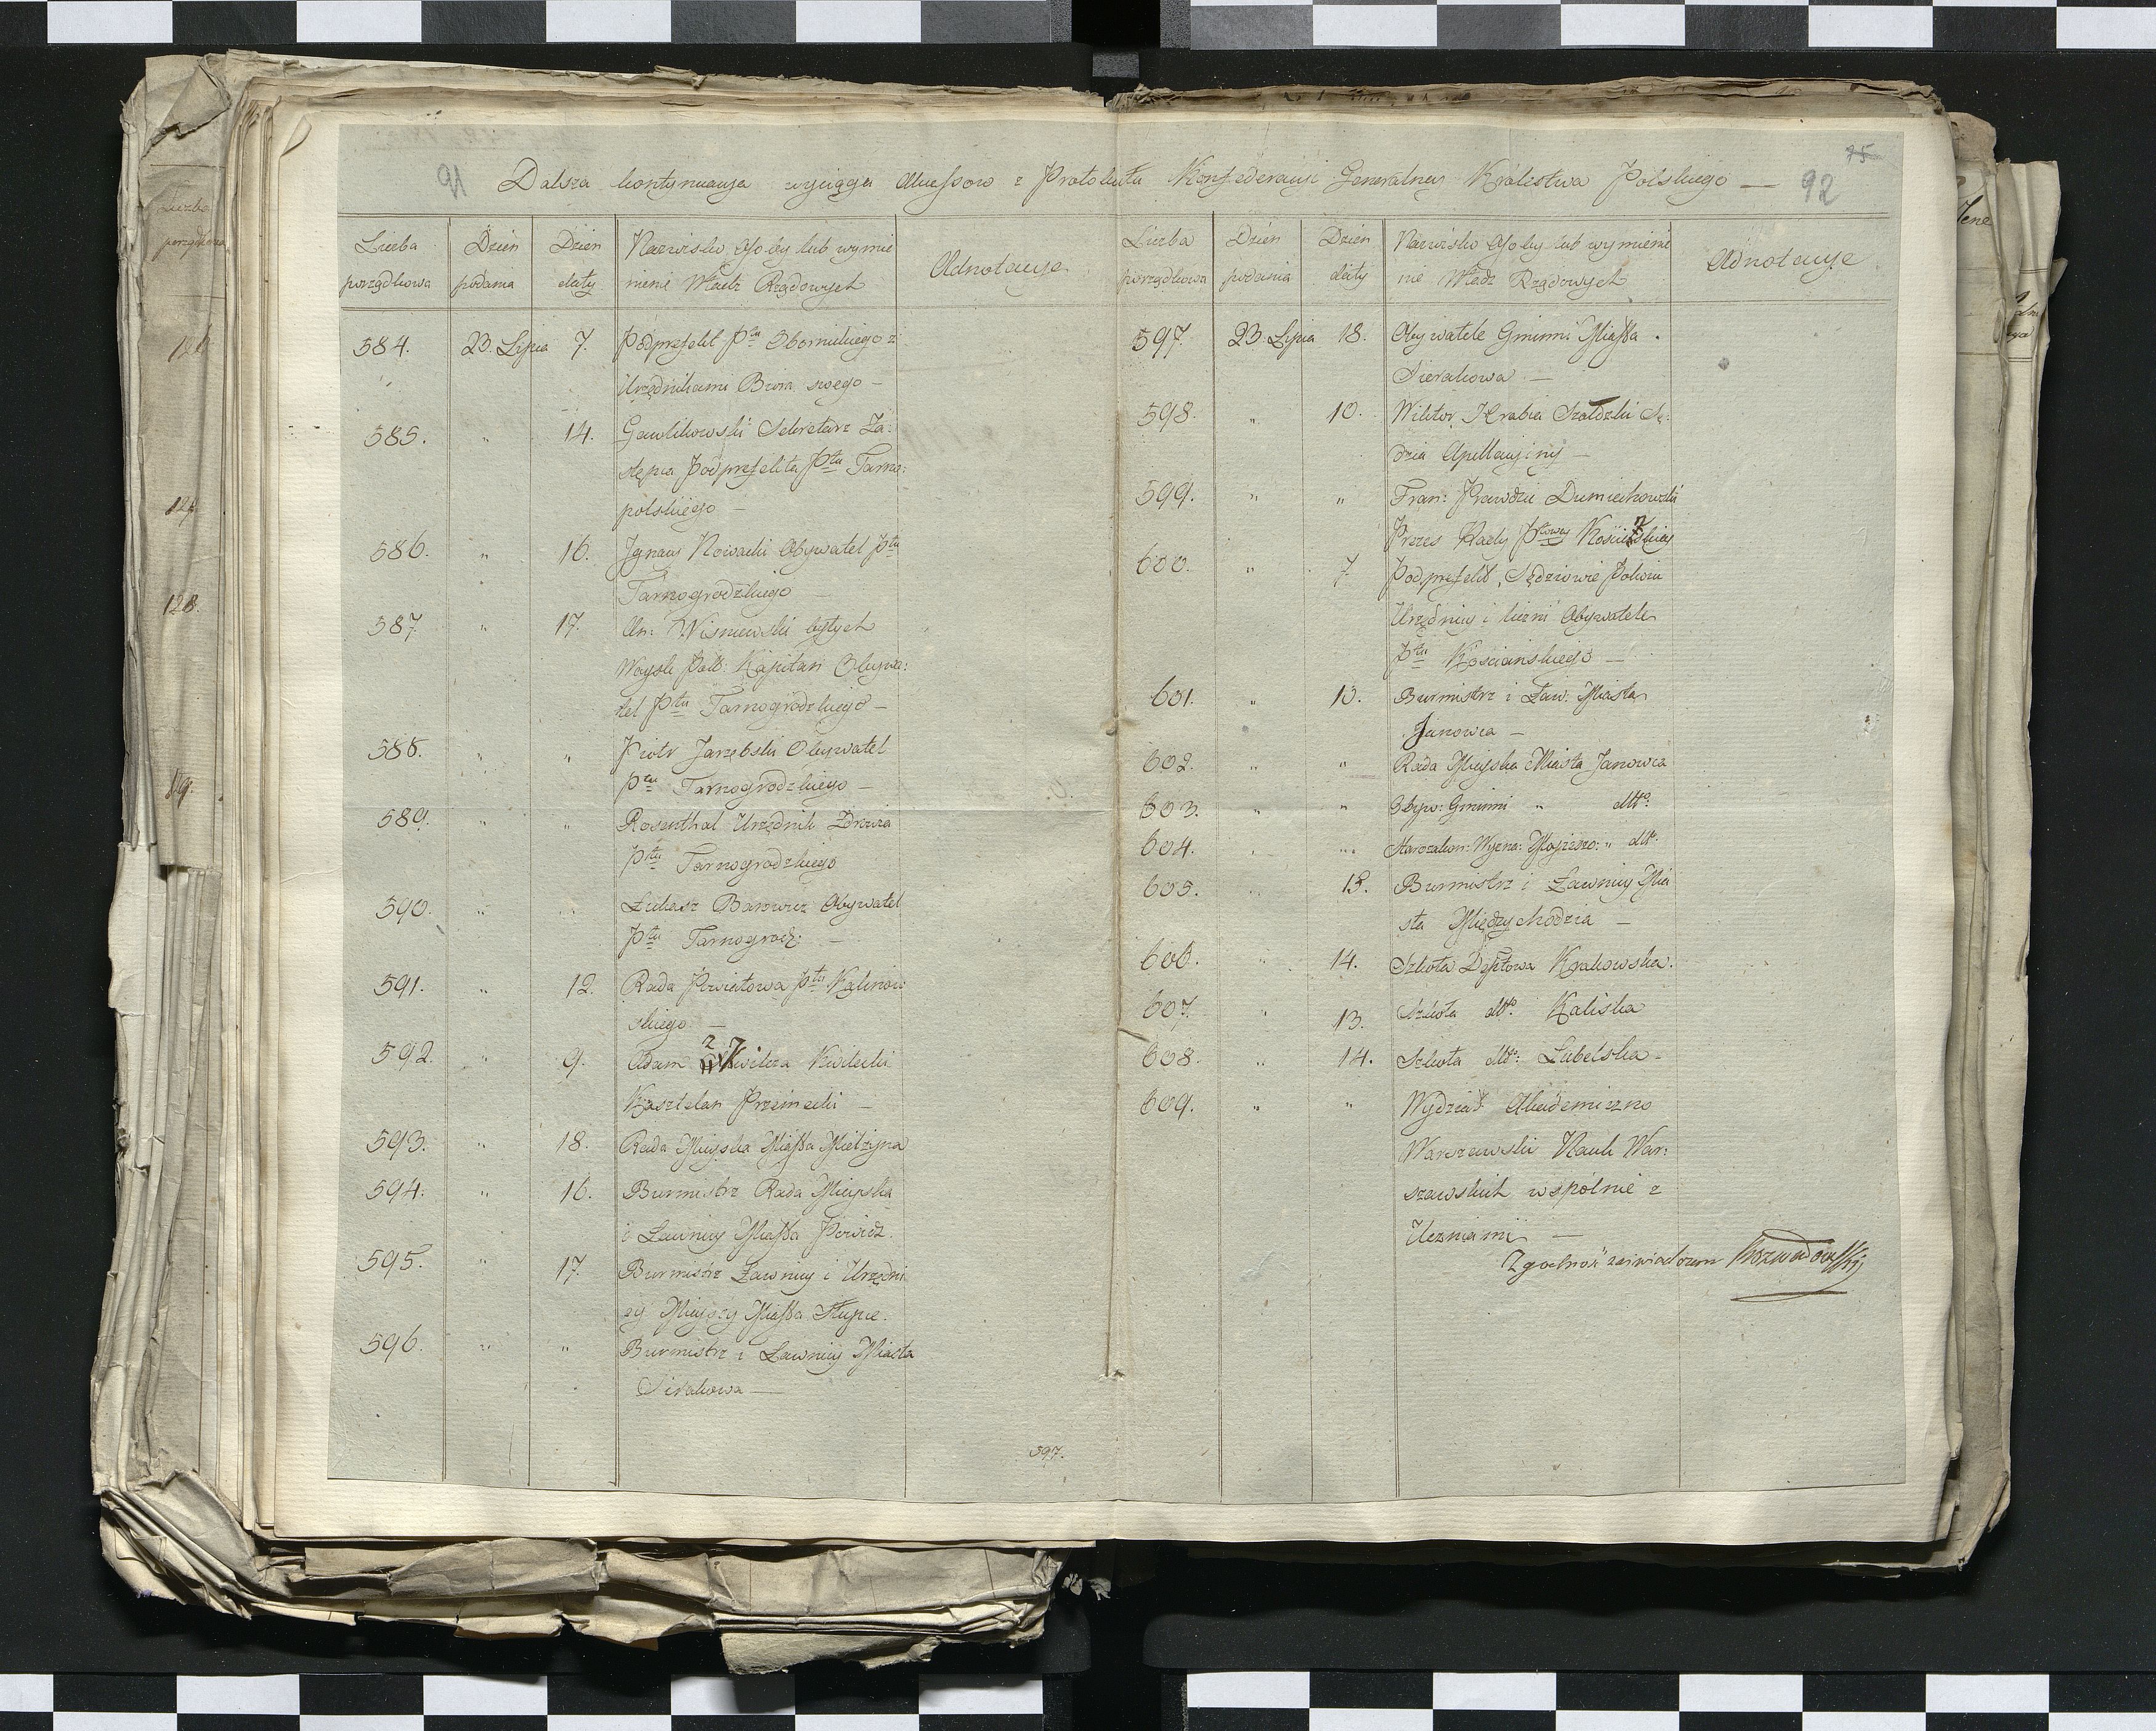 91 Dalsza kontynuacya wyciągu Akcessow z Protokułu Konfederacyi Generalney Królestwa Polskiego —
75
92
Liczba porządkowa | Dzień podania | Dzień daty | Nazwisko Osoby lub wymie
nienie Władz Rządowych | Adnotacye
584. 23. Lipca 7. Podprefekt Ptu Obornickiego z
Urzędnikami Biura swego —
585. " 14. Gawlikowski Sekretarz Za:
stępca Podprefekta Ptu Tarno:
polskiego —
586. " 16. Jgnacy Nowacki Obywatel Ptu
Tarnogrodzkiego —
587. " 17. An: Wisniewski byłych
Woysk Pols: Kapitan Obywa:
tel Ptu Tarnogrodzkiego —
588. " " Piotr Jarzębski Obywatel
Ptu Tarnogrodzkiego —
589. " " Rosenthal Urzędnik Zdrowia
Ptu Tarnogrodzkiego
590. " " Łukasz Obywatel
Ptu Tarnogrodz: —
591. " 12. Rada Powiatowa Ptu
skiego —
592. " 9. Adam z Kwilcza Kwilecki
Kasztelan Przemecki —
593. " 18. Rada Mieyska Miasta Mielżyna
594. " 16. Burmistrz Rada Mieyska
i Ławnicy Miasta Powidz.
595. " 17. Burmistrz Ławnicy i Urzędni
cy Mieyscy Miasta Słupce.
596. " " Burmistrz i Ławnicy Miasta
Sirakowa —
397.
Liczba porządkowa | Dzień podania | Dzień daty | Nazwisko Osoby lub wymieni
nie Władz Rządowych | Adnotacye
597. 23. Lipca 18. Obywatele Gminni Miasta
Sierakowa —
598. " 10. Wiktor Hrabia Szołdzki Sę:
dzia Apellacyiny —
599. " " Fran: Prawdzic
Prezes Rady Ptowey
600. " 7. Podprefekt, Sędziowie Pokoiu
Urzędnicy i liczni Obywatele
Ptu Koscianskiego —
601. " 13. Burmistrz i Ław. Miasta
Janowca —
602. " " Rada Mieyska Miasta Janowca
603. " " Obyw: Gminni " dtto:
604. " " Starozakon: Wyzna: Mojżeszo: " dtto.
605. " 18. Burmistrz i Ławnicy Mia
sta Międzychodzia —
606. " 14. Szkoła Dptowa Krakowska.
607. " 13. Szkoła dtto. Kaliska
608. " 14. Szkoła dtto: Lubelska —
609. " " Wydział Akademiczno
Warszawski Nauk War:
szawskich wspólnie z
Uczniami —
Zgodność zaświadczam
Liczba
porządkowa
126
127.
128.